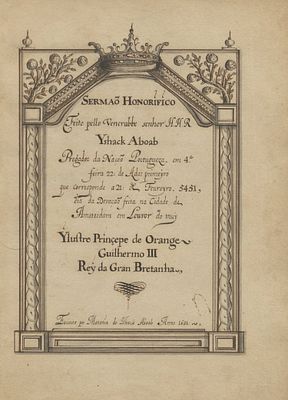 SERMAÕ HONORIFICO
Feito pello Venerable senhor H.H.R
YSHACK ABOAB
Pregador da Nacaõ Portugueza, em 4.ª
feira 22 de Adar primeiro
que corresponde a 21 de Feureyro. 5451,
dia da Devacaõ feita na Cidade de
Amsterdam em Louvor do muj
YLUSTRE PRINÇEPE DE ORANGE
GUILHERMO III
REY DA GRAN BRETANHA,
por de Ishack Aboab Anno 1691